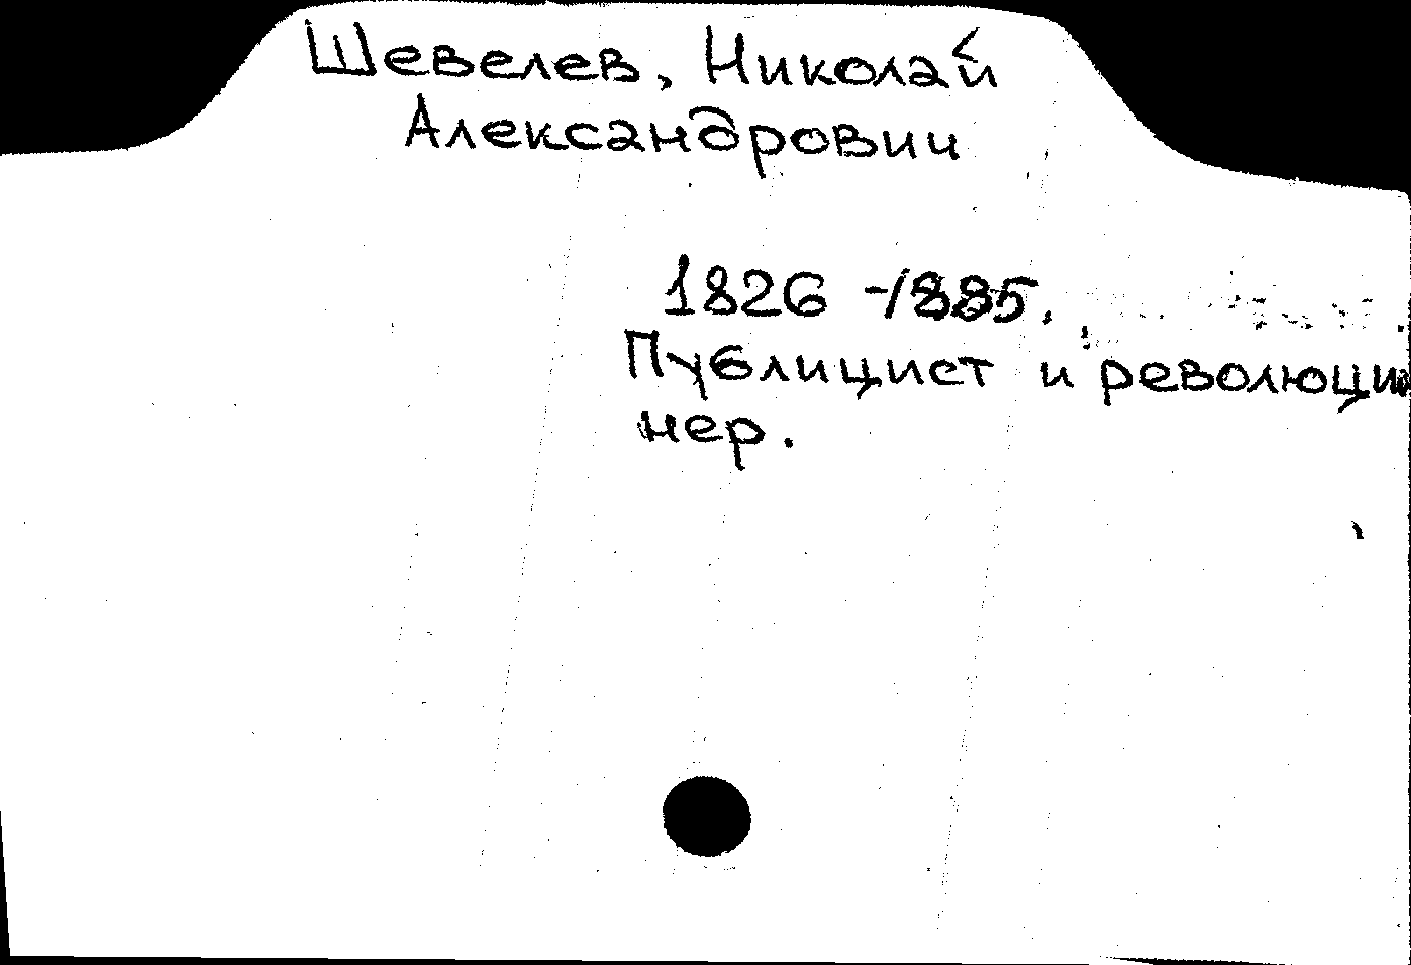 Шевелев, Николай
Александрович
1826 - 1885.
Публицист и революцио
нер.